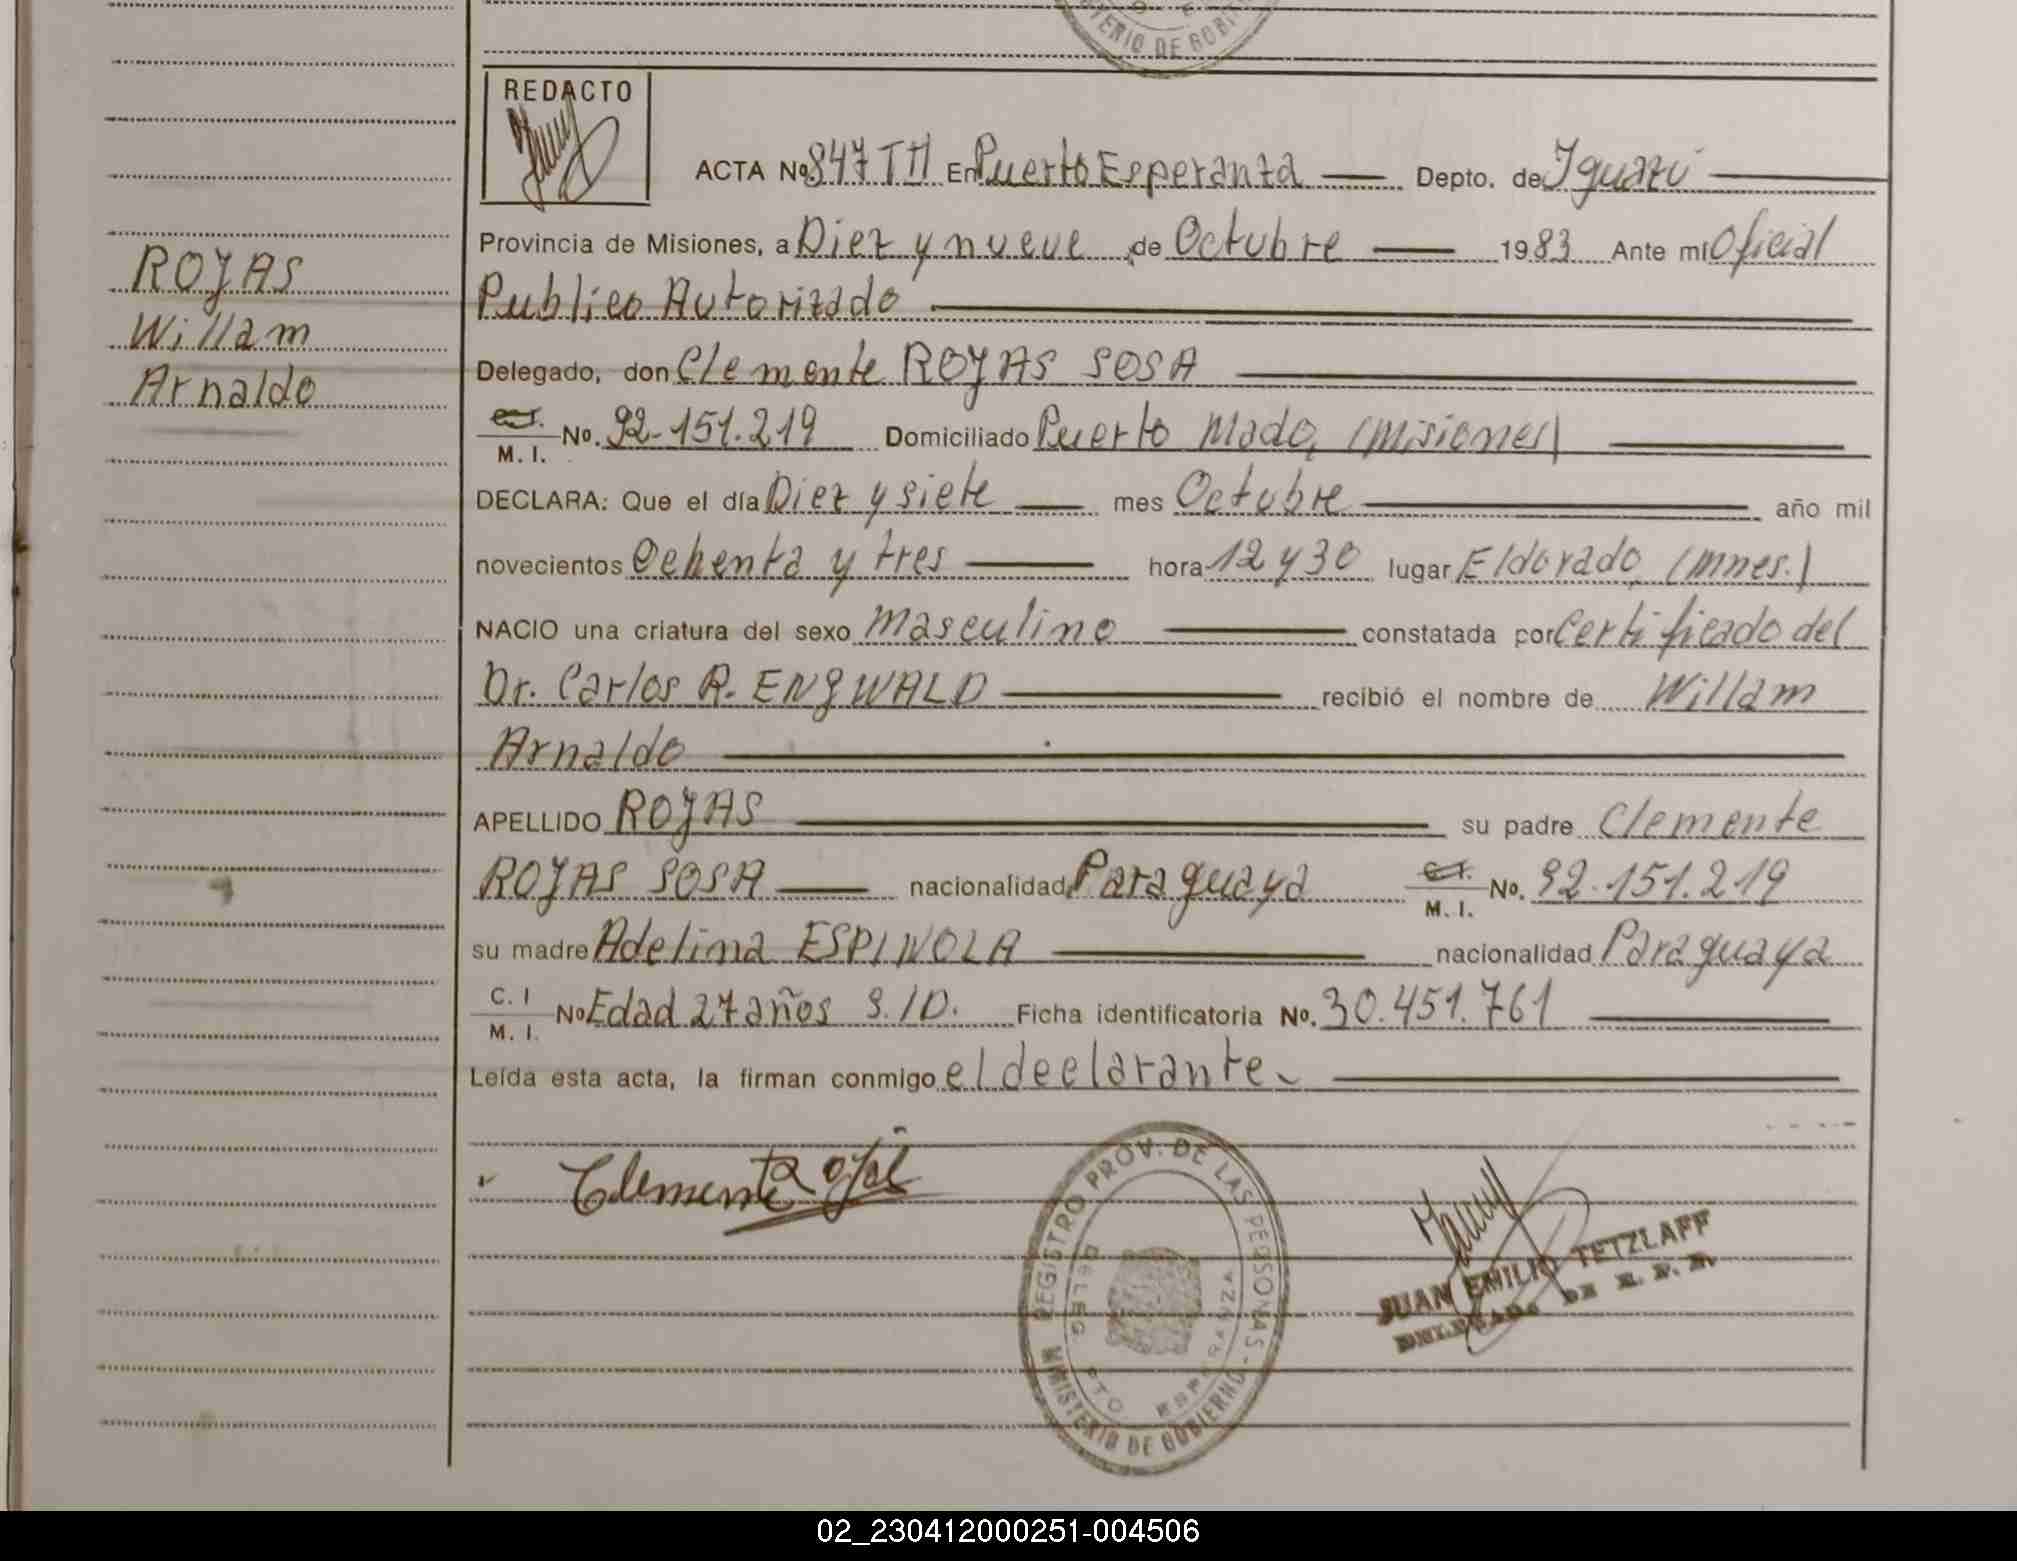 MINISTERIO DE GOBIERNO
REDACTO
ACTA Nº 847 TII En Puerto Esperanza Depto. de Iguazú
Provincia de Misiones, a Diez y nueve de Octubre 1983 Ante mí Oficial
ROJAS
Publico Autorizado
Willam
Delegado, don Clemente ROJAS SOSA
Arnaldo
C.I. / M. I. No. 92-151.219 Domiciliado Puerto Mado, (Misiones)
DECLARA: Que el día Diez y siete mes Octubre año mil
novecientos Ochenta y tres hora 12 y 30 lugar Eldorado, (Mnes.)
NACIO una criatura del sexo Masculino constatada por Certificado del
Dr. Carlos R. ENGWALD recibió el nombre de Willam
Arnaldo
APELLIDO ROJAS su padre Clemente
ROJAS SOSA nacionalidad Paraguaya C.I. / M. I. No. 92.151.219
su madre Adelina ESPINOLA nacionalidad Paraguaya
C. I / M. I. Nº Edad 27 años S./D. Ficha identificatoria No. 30.451.761
Leída esta acta, la firman conmigo el declarante.
Clemente Rojas
REGISTRO PROV. DE LAS PERSONAS - MINISTERIO DE GOBIERNO
DELEG. PTO ESPERANZA
JUAN EMILIO TETZLAFF
DELEGADO DE R. P. P.
02_230412000251-004506